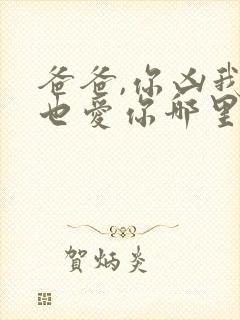 爸爸,你凶我
也爱你那里
賀炳炎